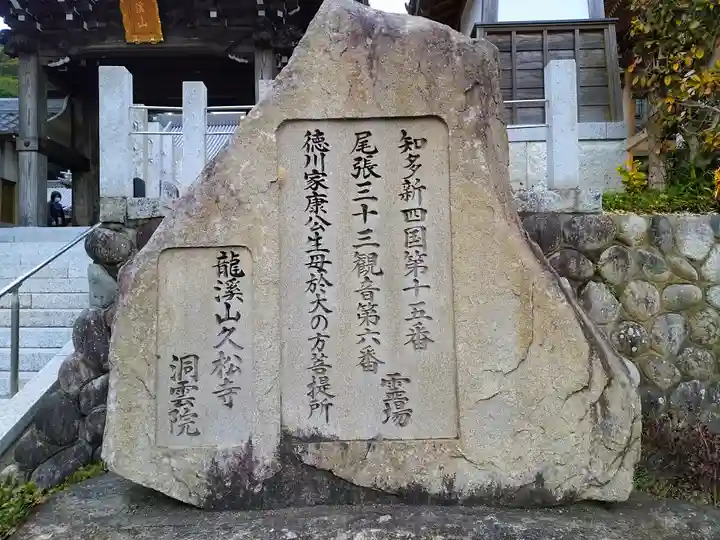 知多新四国第十五番
尾張三十三観音第六番
霊場
徳川家康公生母於大の方菩提所
龍溪山久松寺
洞雲院
溪山